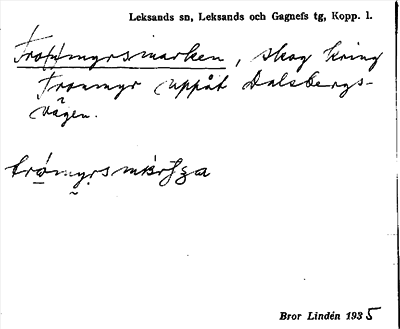 Leksands sn, Leksands och Gagnefs tg, Kopp. l.
Tro(n)myrsmarken, skog kring
Tronmyr uppåt Dalsbergs-
vägen.
Bror Lindén 1935